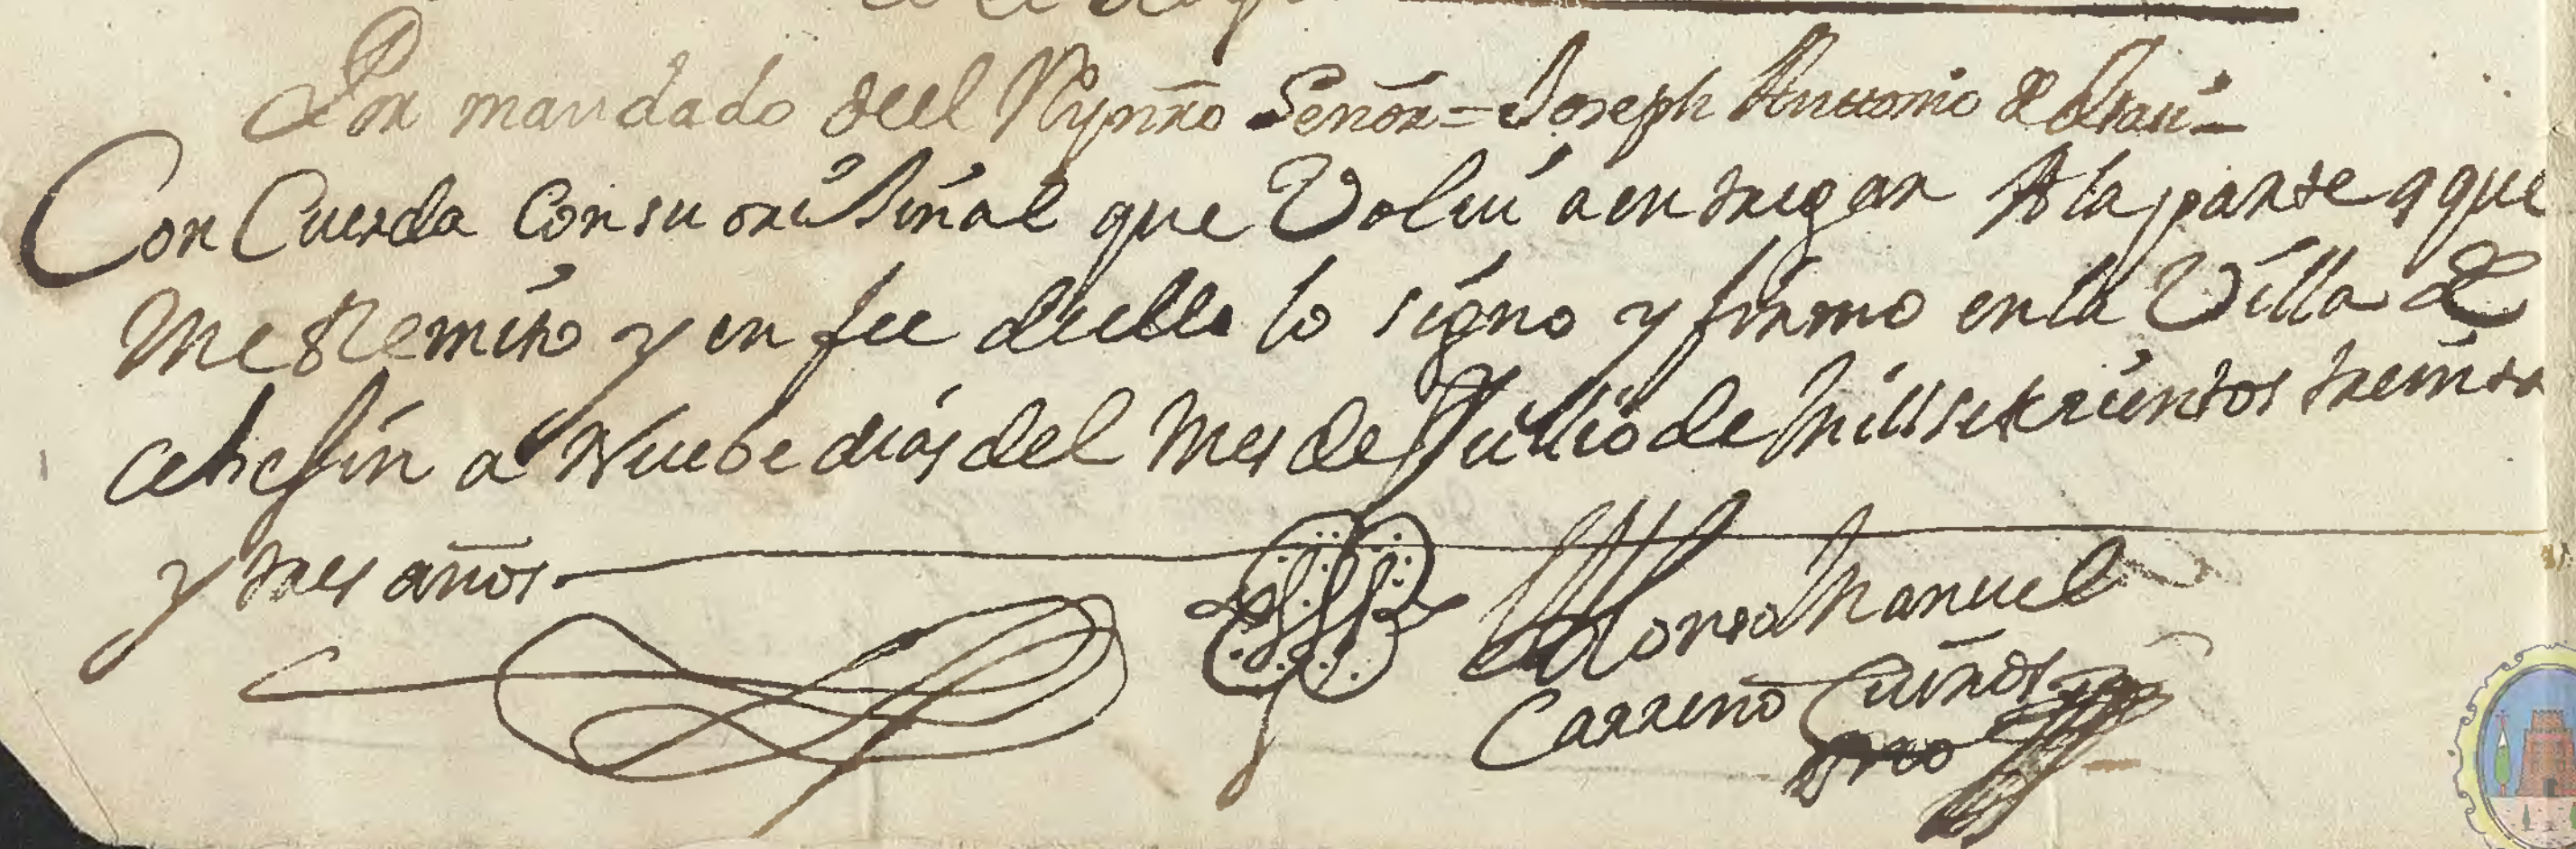 Por mandado deel Rynro Señor = Joseph Anttonio de
Con Cuerda Con su oriJinal que Volui a entregar A la parte q que
Me Remito y en fee deello lo signo y firmo en la Villa de
cehejin a Nuebe dias del Mes de Jullio de Mill setezientos treinta
y tres años
Alonso Manuel
Carreño